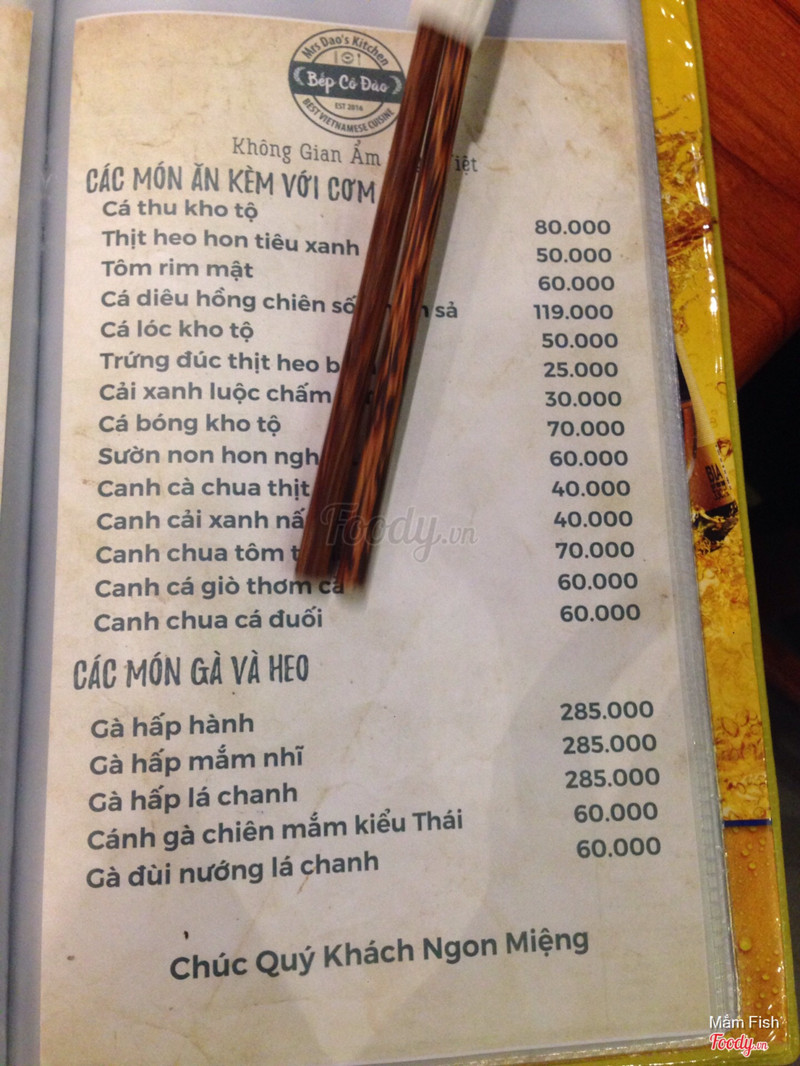 Mrs Dao's Kitchen
Bếp Cô Đào
EST 2016
BEST VIETNAMESE CUISINE
Không Gian Ẩm
CÁC MÓN ĂN KÈM VỚI CƠM
Cá thu kho tộ 80.000
Thịt heo hon tiêu xanh 50.000
Tôm rim mật 60.000
Cá diêu hồng chiên sả 119.000
Cá lóc kho tộ 50.000
Trứng đúc thịt heo 25.000
Cải xanh luộc chấm 30.000
Cá bóng kho tộ 70.000
Sườn non hon 60.000
Canh cà chua thịt 40.000
Canh cải xanh 40.000
Canh chua tôm 70.000
Canh cá giò thơm cà 60.000
Canh chua cá đuối 60.000
CÁC MÓN GÀ VÀ HEO
Gà hấp hành 285.000
Gà hấp mắm nhĩ 285.000
Gà hấp lá chanh 285.000
Cánh gà chiên mắm kiểu Thái 60.000
Gà đùi nướng lá chanh 60.000
Chúc Quý Khách Ngon Miệng
Foody.vn
BIA
Mắm Fish
Foody.vn